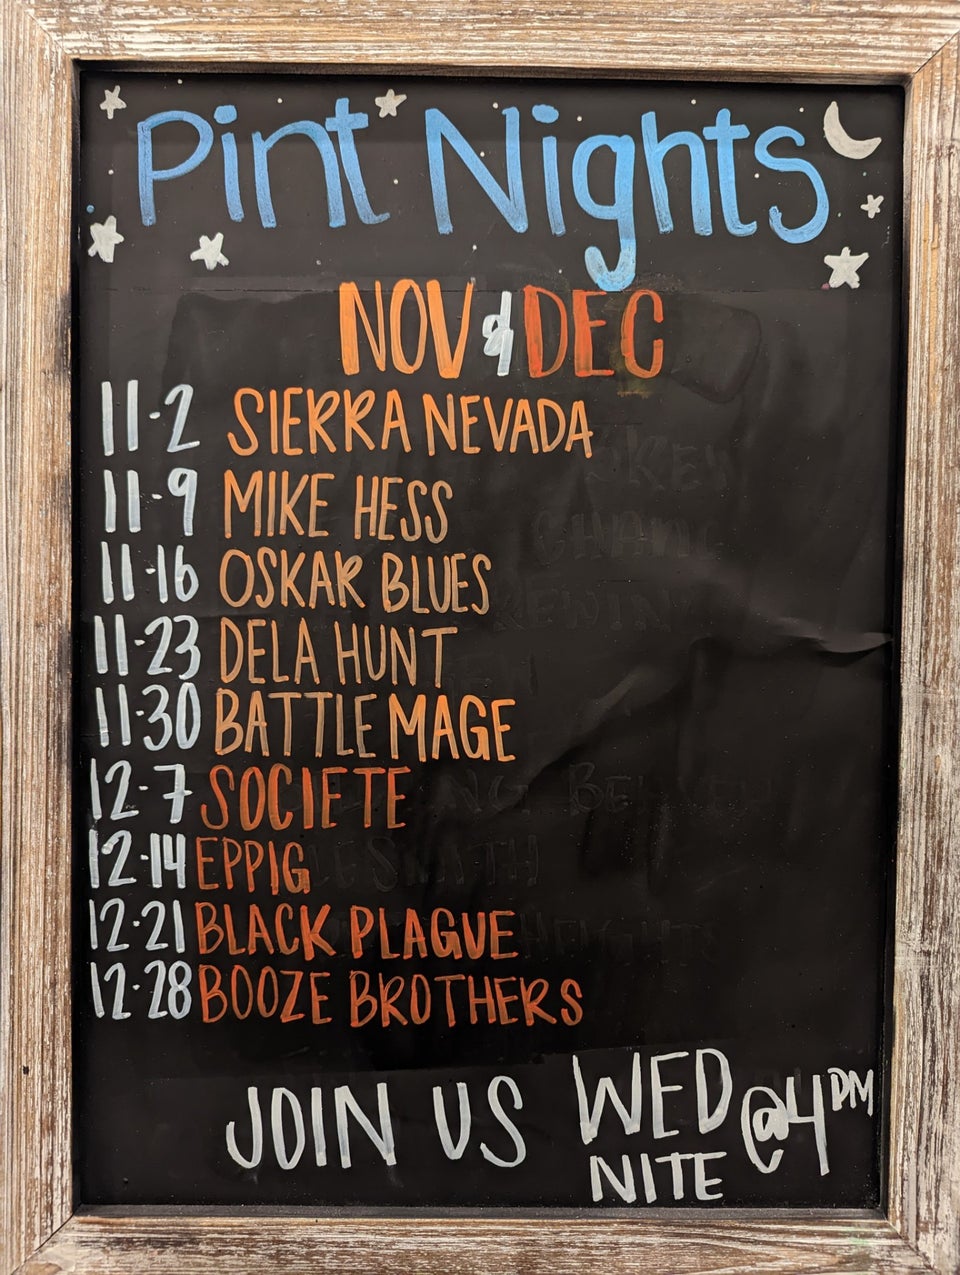 Pint Nights
NOV & DEC
11-2 SIERRA NEVADA
11-9 MIKE HESS
11-16 OSKAR BLUES
11-23 DELA HUNT
11-30 BATTLE MAGE
12-7 SOCIETE
12-14 EPPIG
12-21 BLACK PLAGUE
12-28 BOOZE BROTHERS
JOIN US WED @4PM
NITE